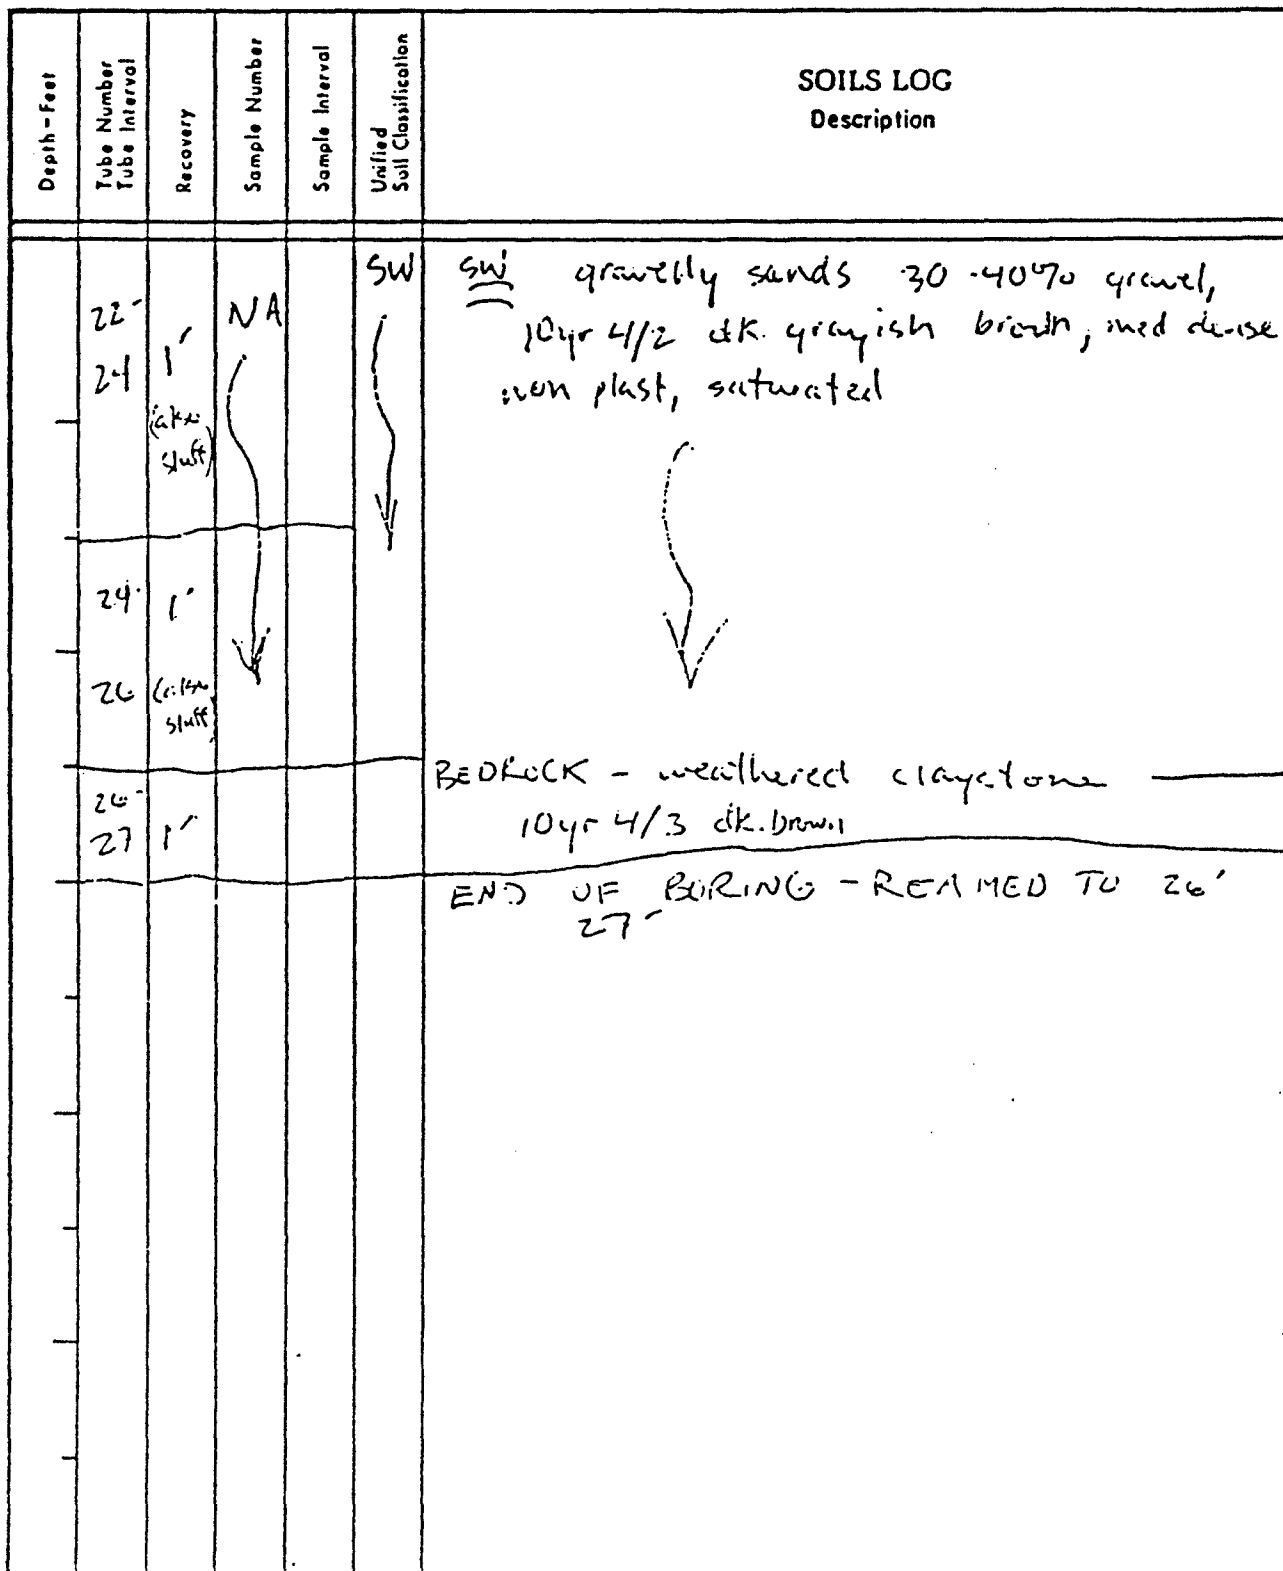 Depth-Feet
Tube Number
Tube Interval
Recovery
Sample Number
Sample Interval
Unified
Soil Classification
SOILS LOG
Description
22-
24
1'
sluff)
NA
SW
SW gravelly sands 30-40% gravel,
10yr 4/2 dk. grayish brown, med dense
non plast, saturated
24-
26
1'
sluff)
26-
27
1'
BEDROCK - weathered claystone
10yr 4/3 dk. brown
END OF BORING - REAMED TO 26'
27'